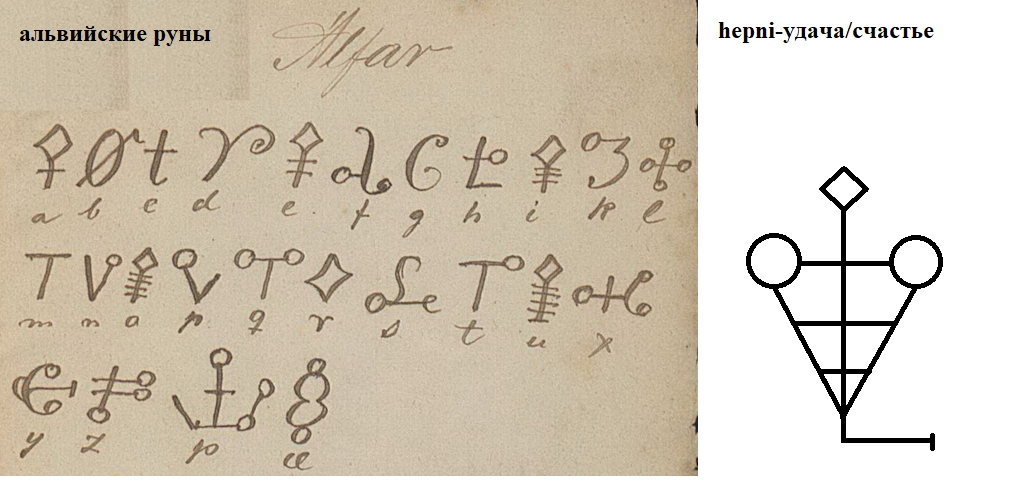 альвийские руны
Alfar
a b c d e f g h i k l
m n o p q r s t u x
y z þ æ
hepni-удача/счастье